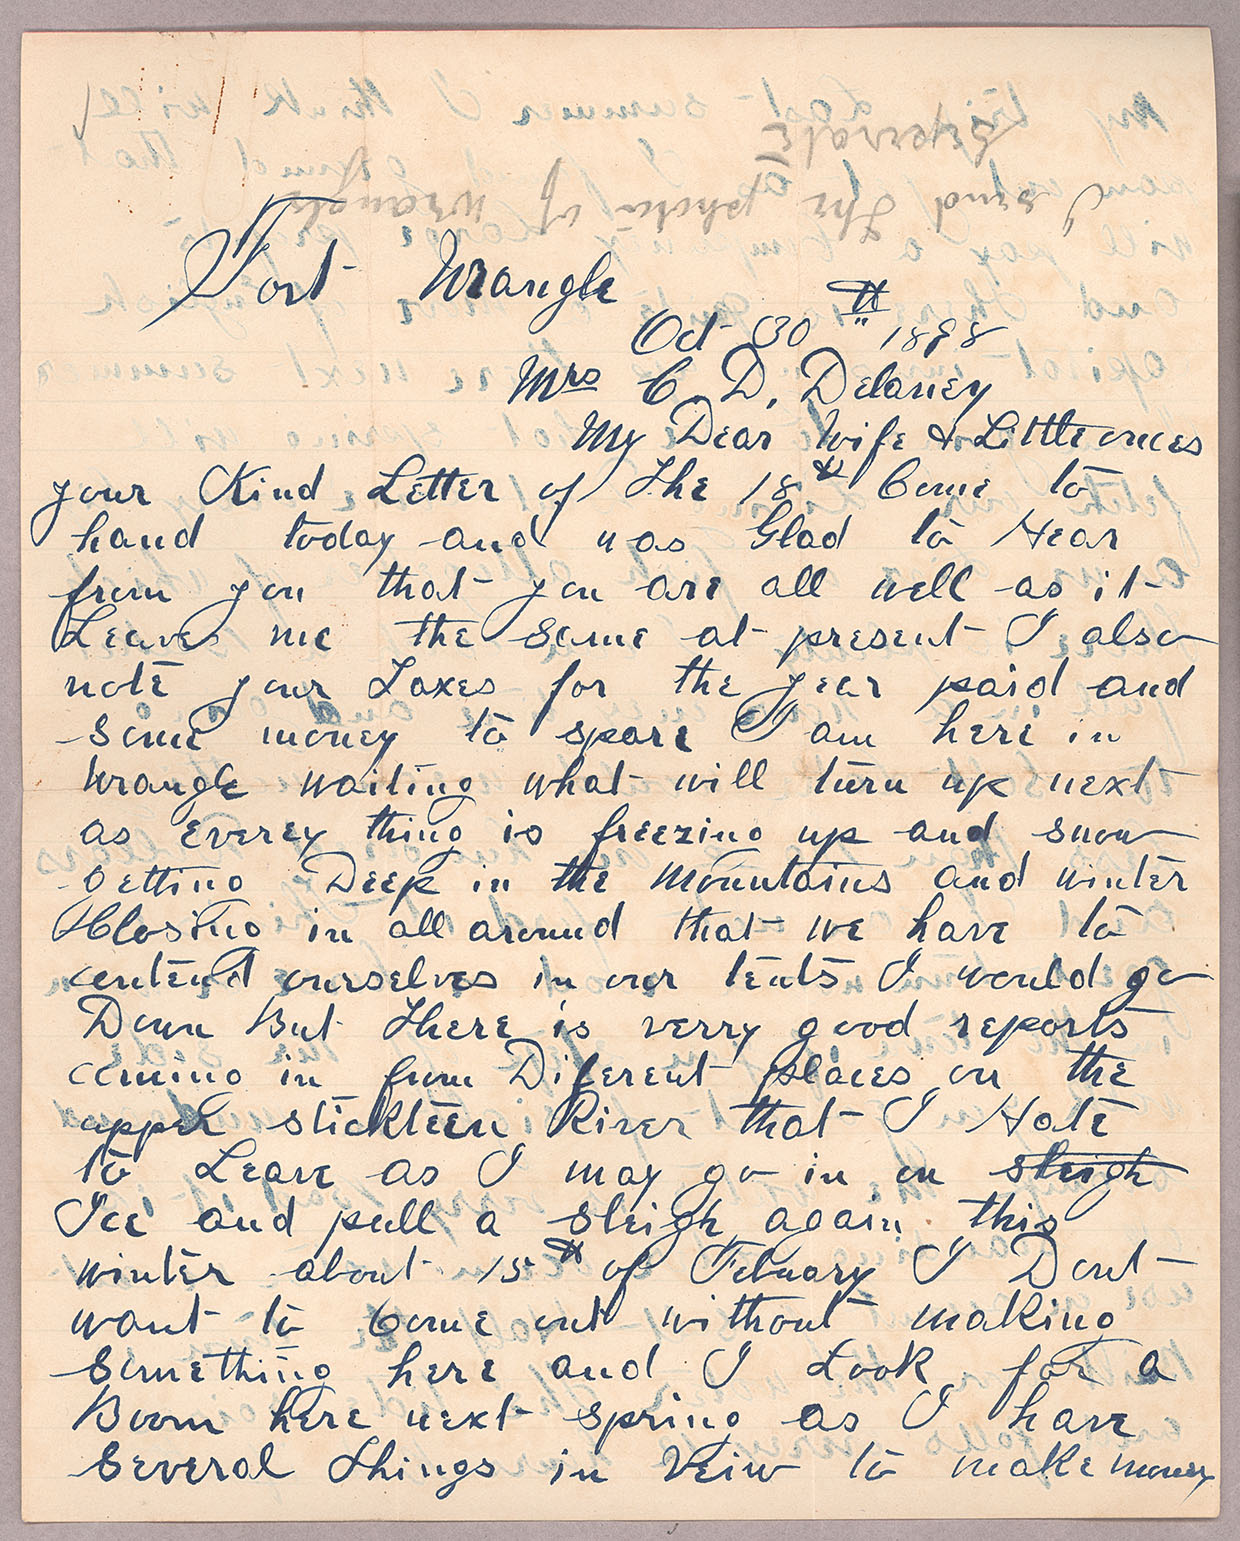 I send the photo of Wrangle
Seperate
Fort Wrangle
Oct 30th 1898
Mrs C. D. Delaney
My Dear Wife & Little onces
your Kind Letter of the 18th Come to
hand today and was Glad to Hear
from you that you are all well as it
Leaves me the same at present I also
note your Taxes for the year paid and
some money to spare I am here in
Wrangle waiting what will turn up next
as everey thing is freezing up and snow
getting Deep in the Mountains and winter
Closing in all around that we have to
contend ourselves in our tents I would go
Down But there is verry good reports
coming in from Diferent places on the
upper stickteen River that I Hate
to Leave as I may go in on sleigh
Ice and pull a sleigh again this
winter about 15th of Febuary I Dont
want to Come out without making
Something here and I Look for a
Boom here next spring as I have
Several things in Veiw to make money